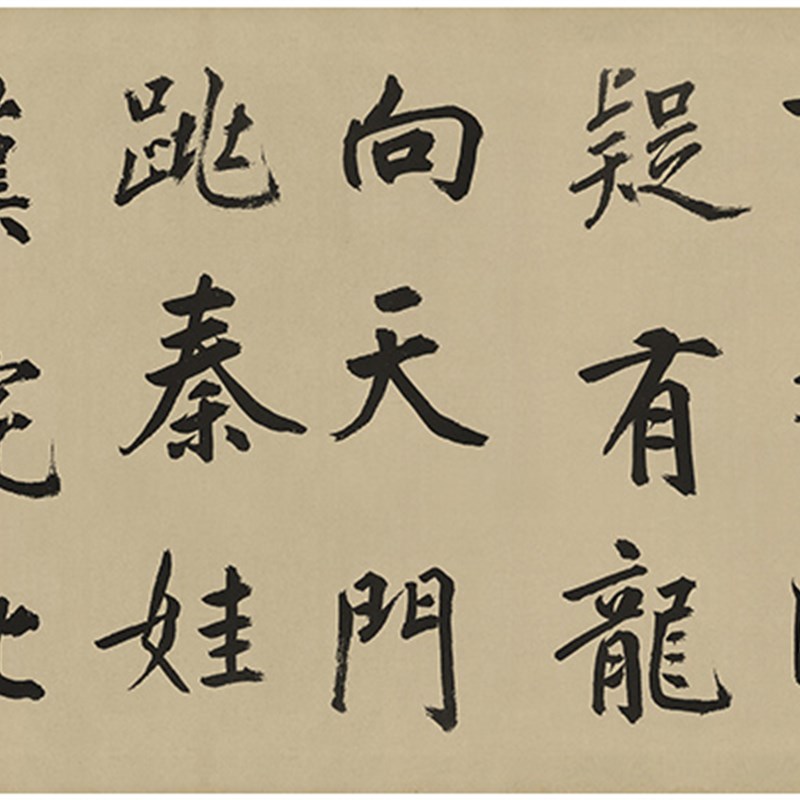 疑有龍
向天門
跳秦娃